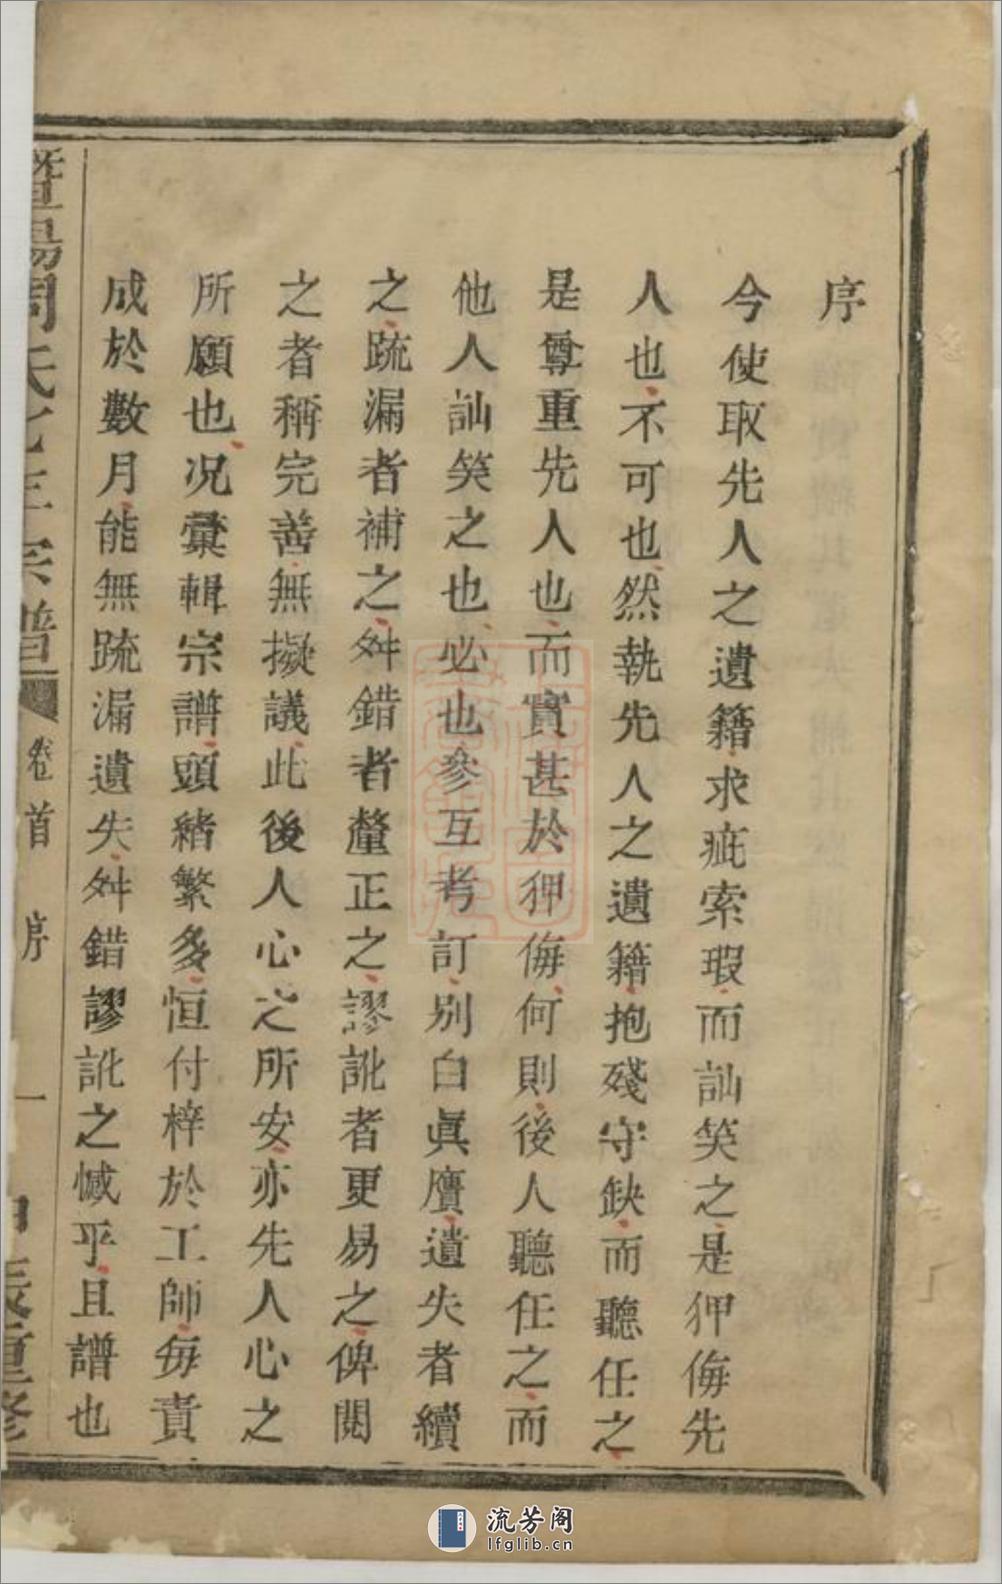 序
今使取先人之遺籍求疵索瑕而訕笑之是狎侮先
人也不可也然執先人之遺籍抱殘守缺而聽任之
是尊重先人也而實甚於狎侮何則後人聽任之而
他人訕笑之也必也參互考訂别白眞贋遺失者續
之䟽漏者補之舛錯者釐正之謬訛者更易之俾閱
之者稱完善無擬議此後人心之所安亦先人心之
所願也况彙輯宗譜頭緒繁多恒付梓於工師每責
成於數月能無䟽漏遺失舛錯謬訛之憾乎且譜也
暨陽周氏宗譜 卷首 序 一 重修
流芳阁
lfglib.cn